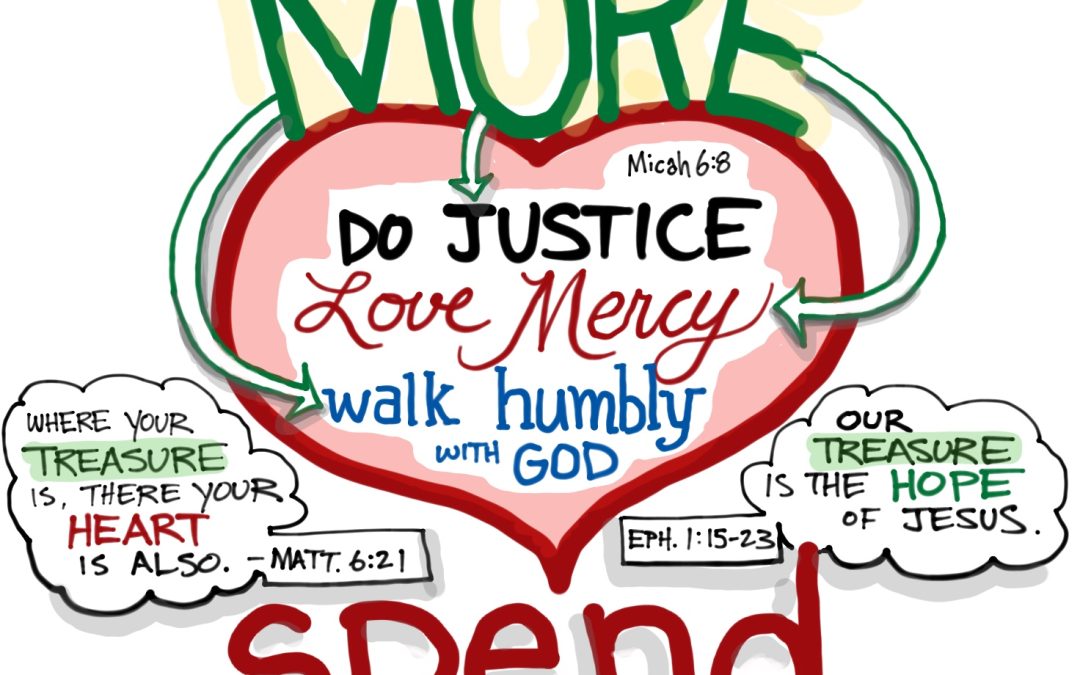 MORE
Micah 6:8
DO JUSTICE
Love Mercy
walk humbly
WITH GOD
WHERE YOUR
TREASURE
IS, THERE YOUR
HEART
IS ALSO.
-MATT. 6:21
OUR
TREASURE
IS THE HOPE
OF JESUS.
EPH. 1:15-23
spend